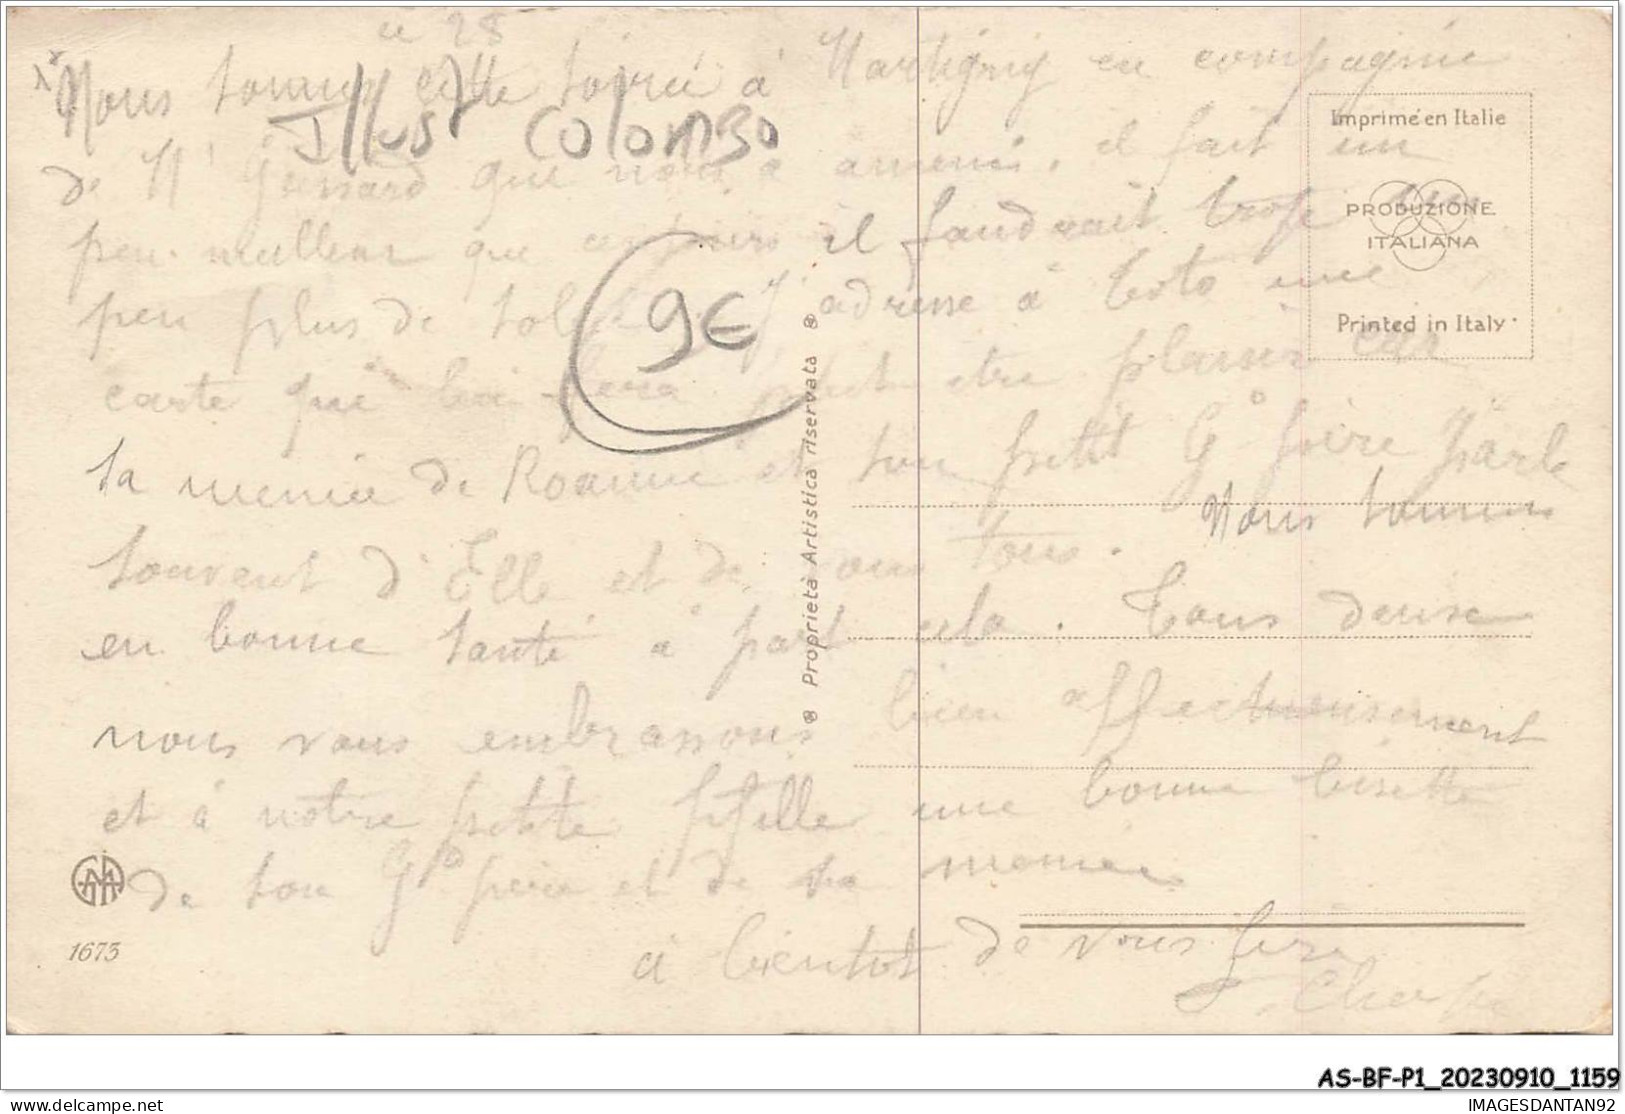 le 28
Nous sommes cette soirée à Martigny en compagnie
Illust Colombo
de Mr que nous a amenés. il fait un
peu meilleur que il faudrait
peu plus de soleil j'adresse à Toto une
carte que lui fera peut etre plaisir car
sa memée de Roanne et son petit Gd père parle
souvent d'Elle et de vous tous. Nous sommes
en bonne santé à part cela. Tous deux
nous vous embrassons bien affectueusement
et à notre petite fifille une bonne bisette
de son Gd père et de sa memée
à bientot de vous lire
9€
Imprimé en Italie
PRODUZIONE
ITALIANA
Printed in Italy
® Proprietà Artistica riservata ®
1673
AS-BF-P1_20230910_1159
delcampe.net
IMAGESDANTAN92